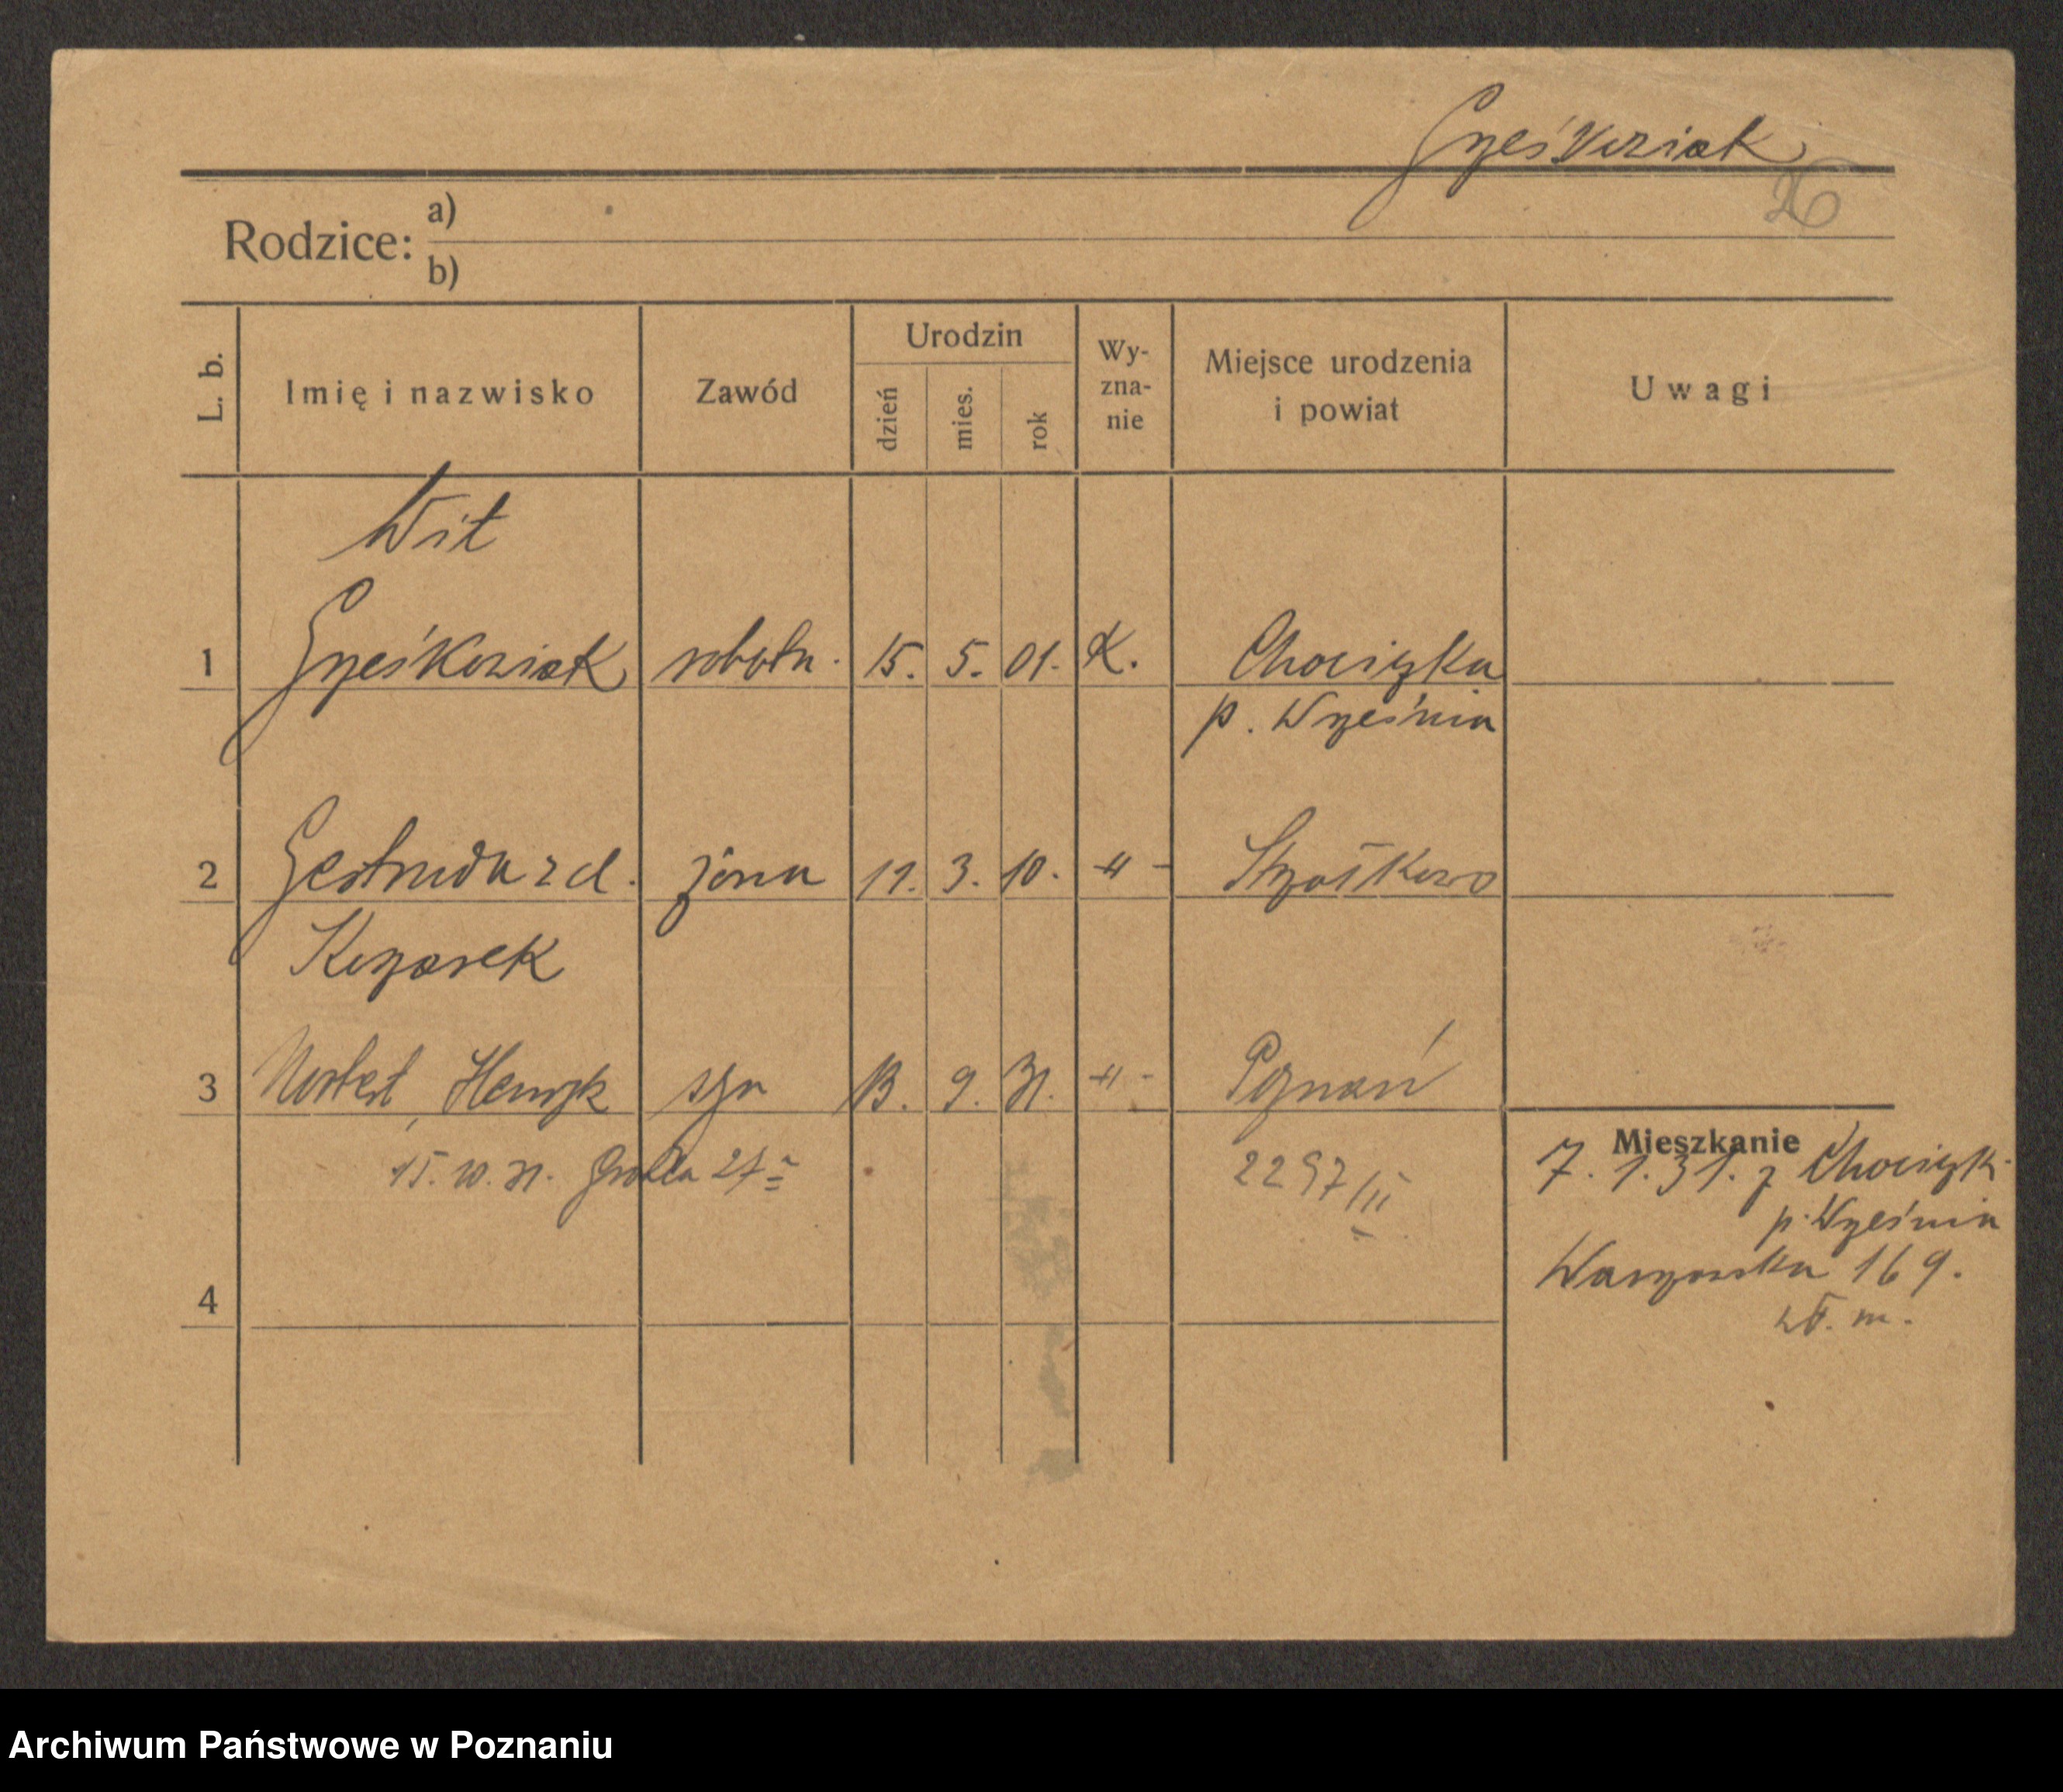 Grześkowiak
26
Rodzice: a)
b)
L. b. Imię i nazwisko Zawód Urodzin dzień mies. rok Wy-zna-nie Miejsce urodzenia i powiat Uwagi
Wit
1 Grześkowiak robotn. 15. 5. 01. K. Chociczka
p. Września
2 Gertruda z d. żona 11. 3. 10. -"- Strzałkowo
3 Norbert, Henryk syn 13. 9. 31. -"- Poznań
Mieszkanie
15. 10. 31. 27 2297/III
7. 1. 31. z Chociczk.
p. Września
Warszawska 169.
wł. m.
4
Archiwum Państwowe w Poznaniu